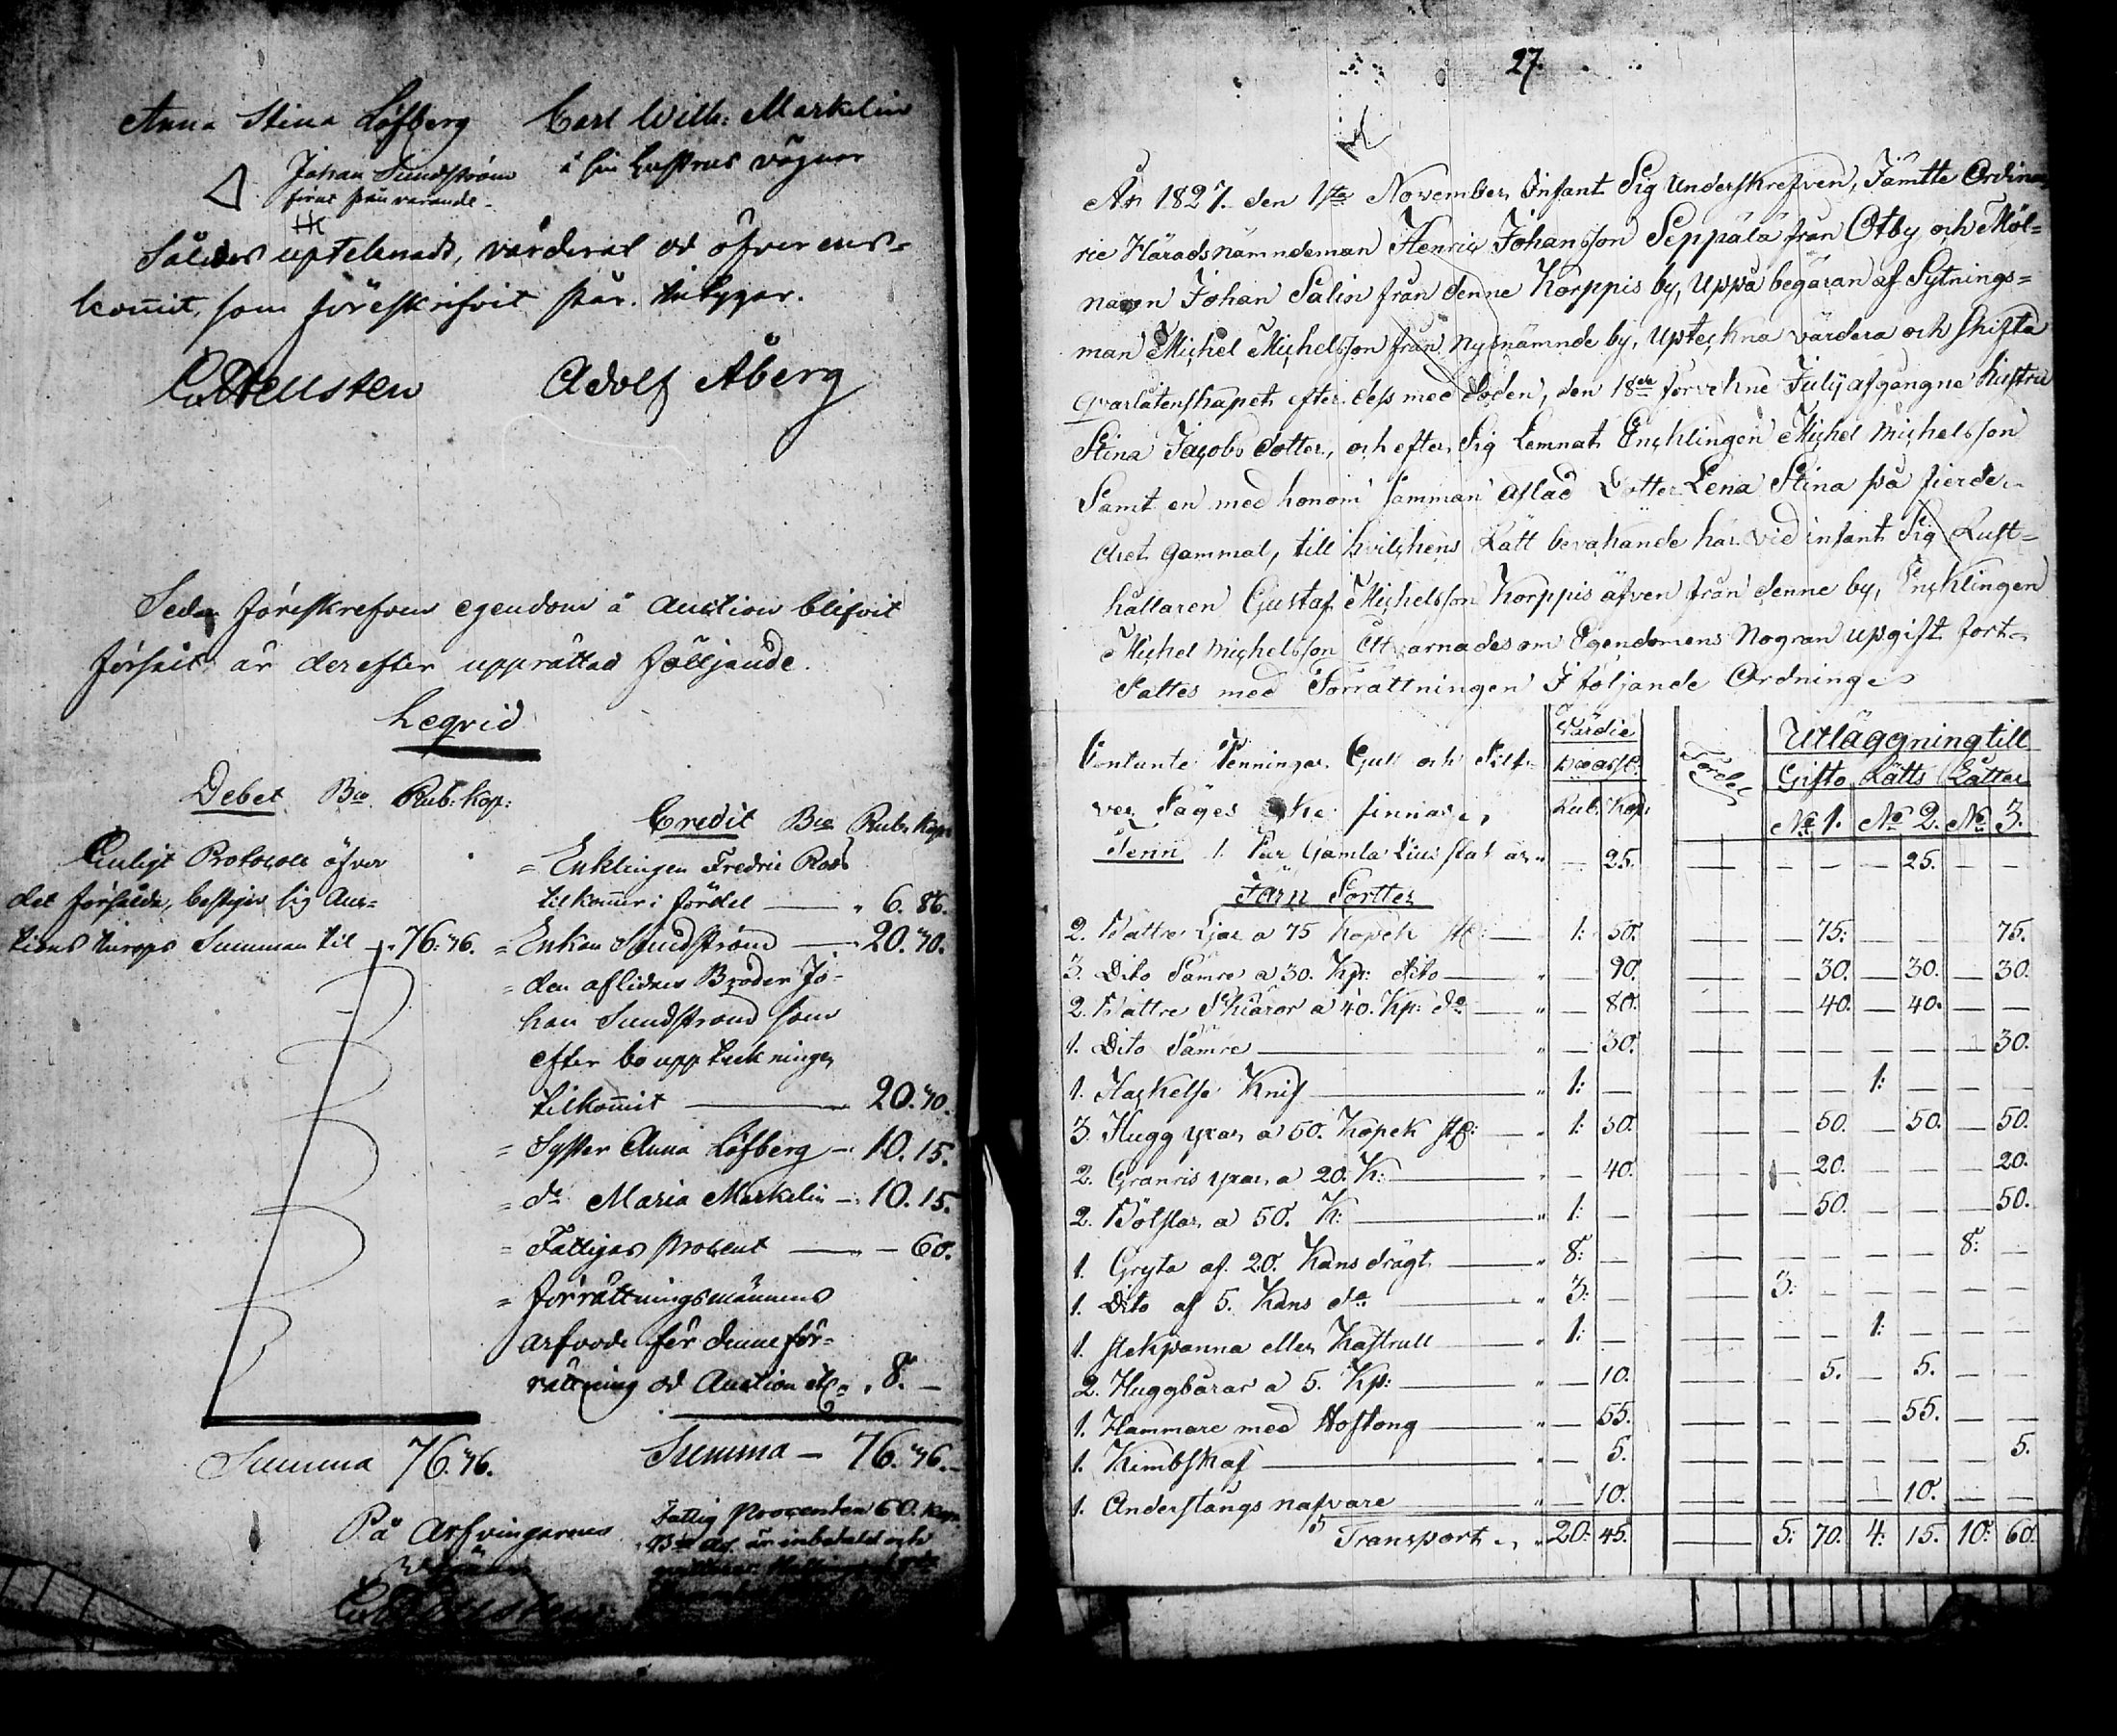 Anna Stina Löfberg Carl Wilh: Markelin
Johan Sundström å sin hustrus vägnar
Således uptecknadt, värderat och öfverens-
kom̄it, som föreskrifvit står. betygar.
Adolf Åberg
Sedan föreskrefven egendom å Auction blifvit
försåld, är derefter upprättad följande.
Leqvid
Debet Bco Rub: Kop:
Credit Bco Rub: Kop:
Enligt Protocoll öfver
det försålda, bestiger sig Auc-
tions inrops Summan til 76: 76.
= Enklingen Fredric Roos
tilkom̄er i fördel — " 6. 86.
= Enkan Sundström — 20. 70.
= den aflidnes Broder Jo-
han Sundström som
efter bouppteckningen
tilkom̄it — 20. 70.
= Syster Anna Löfberg — 10. 15.
= do Maria Markelin — 10. 15.
= Fattigas procent — " — 60.
= förrättningsmännens
arfvode för denne för-
rättning och Auction " 8. —
Summa 76. 76.
Summa — 76. 76.
På Arfvingarnes
vägnar
Fattig Procenten 60. kop.
27.
År 1827. den 1sta November, Infant Sig Underskrefven, Jämtte Ordina-
rie Häradsnämndeman Henric Johansson Seppälä från Otby och Möl-
naren Johan Salin från denne Korppis by, Uppå begäran af Sytnings-
man Michel Michelsson från nysnämnde by, Upteckna värdera och skifta
qvarlåtenskapet efter dess med döden, den 18de förvekne July afgångne hustru
Stina Jacobs dotter, och efter Sig Lemnat Encklingen Michel Michelsson
Samt en med honom samman aflad Dotter Lena Stina på fierde
året gammal, till hvilckens Rätt bevakande här vid infant Sig Rust-
hållaren Gustaf Michelsson Korppis äfven från denne by, Encklingen
Michel Michelsson åtvarnades om Egendomens Nogran upgift fort-
sattes med Förrättningen I följande Ordning
Contante Penningar Gull och Silf-
ver Säges Icke finnas
Värdie
Rub: Kop:
Fördel
Utläggning till
Gifto Rätts Lotter
No 1. No 2. No 3.
Tenn 1. Par Gamla Lius stakar " — 25. — — — 25. — —
Järn Sortter
2. Bättre Ljar a 75 Kopek st: — 1: 50. — — 75: — — 75.
3. Dito Sämre a 30. Kp: dito — " — 90. — — 30. — 30. — 30.
2. Bättre Skiäror a 40. Kp: do — " — 80. — — 40. — 40. — —
1. Dito Sämre — " — 30. — — — — — — 30.
1. Hackelse Knif — " 1: — — — — 1: — — —
3. Hugg yxar a 50. Kopek st: — " 1: 50. — — 50. — 50. — 50.
2. Granris yxar a 20. K: — " — 40. — — 20. — — — 20.
2. Bölstar a 50. K: — " 1: — — — 50. — — — 50.
1. Gryta af 20. Kans drägt — " 8: — — — — — — 8: —
1. Dito af 5. Kans do — " 3: — — 3: — — — — —
1. stekpanna eller Kastrull — " 1: — — — — 1: — — —
2. Huggbårar a 5. Kp: — " — 10. — — 5. — 5. — —
1. Hammare med Hoftong — " — 55. — — — — 55. — —
1. Kimbskaf — " — 5. — — — — — — 5.
1. Anderstångs nafvare — " — 10. — — — — 10. — —
Transport " 20: 45. — 5: 70. 4: 15. 10: 60.